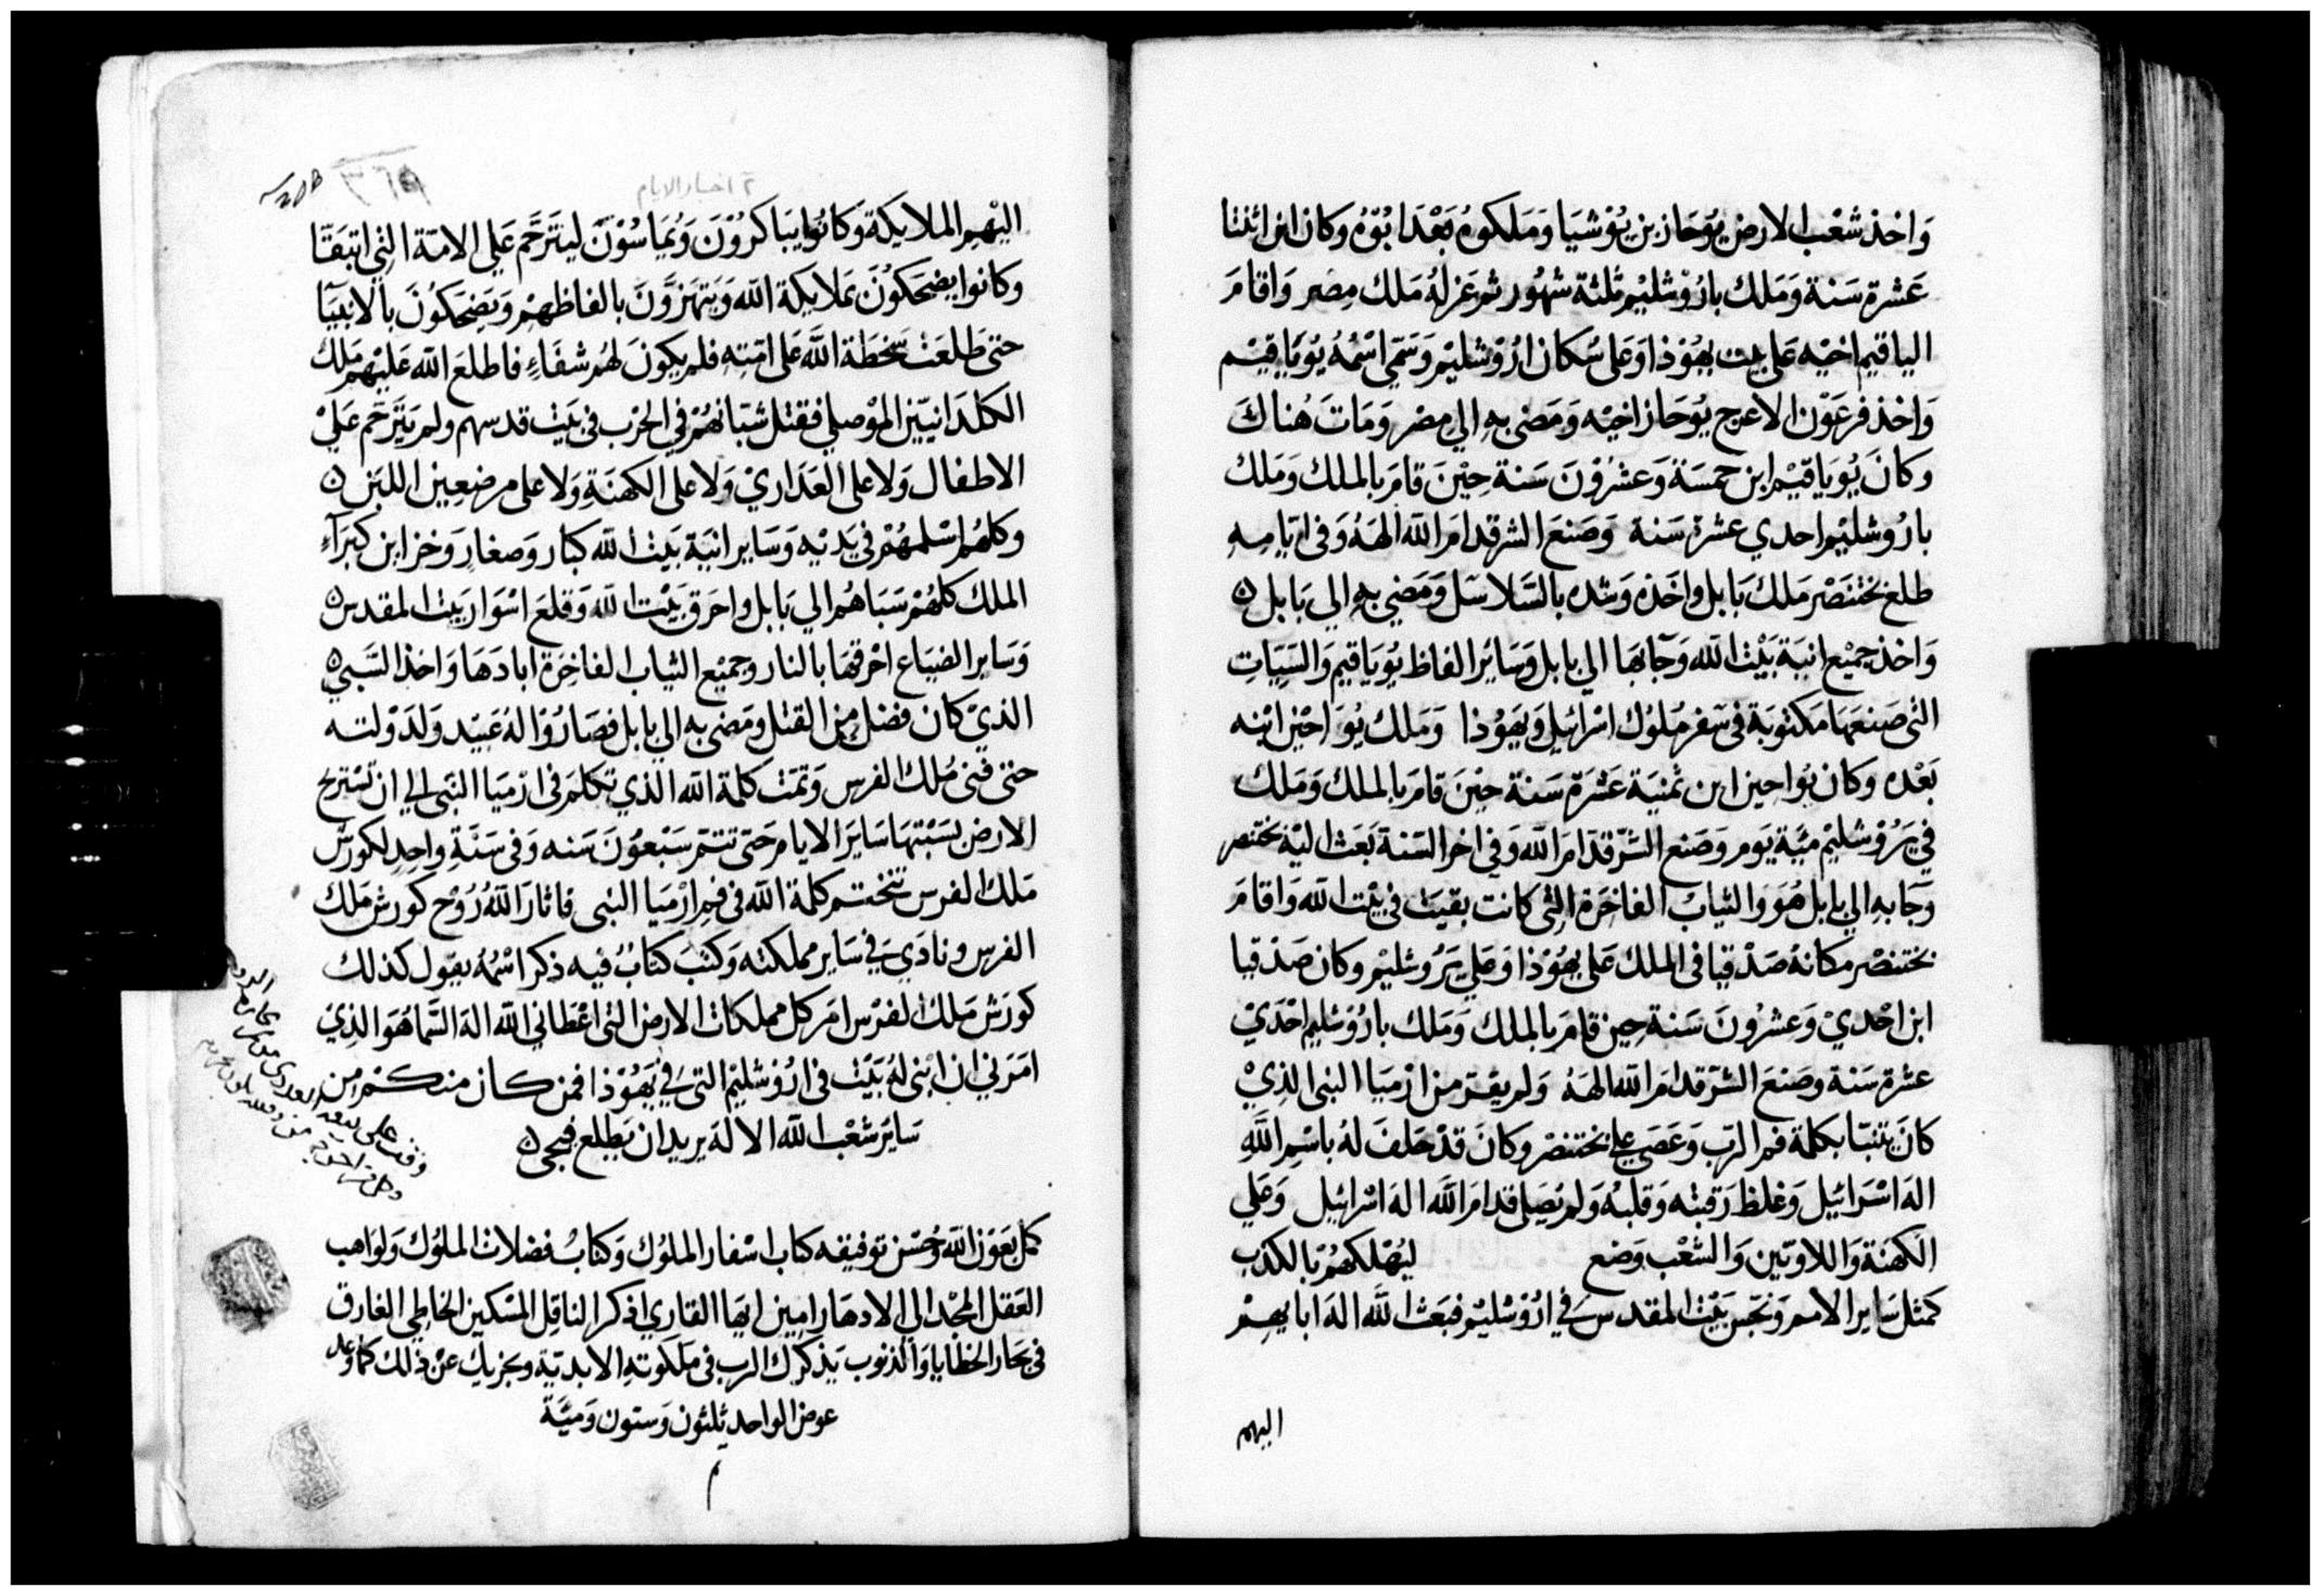 واخذ شعب الارض يوحاز بن يوشيا وملكوه بعد ابوه وكان ابن اثنتا
عشرة سنة وملك باروشليم ثلثة شهور ثم عزله ملك مصر واقام
الياقيم اخيه على بيت يهوذا وعلى سكان اروشليم وسمي اسمه يوياقيم
واخذ فرعون الاعرج يوحاز اخيه ومضى به الي مصر ومات هناك
وكان يوياقيم ابن خمسة وعشرون سنة حين قام بالملك وملك
باروشليم احدي عشرة سنة وصنع الشر قدام الله الهه وفى ايامه
طلع بختنصر ملك بابل واخذه وشده بالسلاسل ومضي به الي بابل
واخذ جميع انية بيت الله وجابها الي بابل وساير الفاظ يوياقيم والسيات
التى صنعها مكتوبة في سفر ملوك اسرائيل ويهوذا وملك يواحين ابنه
بعده وكان يواحين ابن ثمنية عشرة سنة حين قام بالملك وملك
في يروشليم مية يوم وصنع الشر قدام الله وفي اخر السنة بعث اليه بختنصر
وجابه الي بابل هو والثياب الفاخرة التى كانت بقيت في بيت الله واقام
بختنصر مكانه صدقيا فى الملك على يهوذا وعلي يروشليم وكان صدقيا
ابن احدي وعشرون سنة حين قام بالملك وملك باروشليم احدي
عشرة سنة وصنع الشر قدام الله الهه ولم يقر من ارميا النبى الذي
كان يتنبا بكلمة فم الرب وعصى علي بختنصر وكان قد حلف له باسم الله
اله اسرائيل وغلظ رقبته وقلبه ولم يصلي قدام الله اله اسرائيل وعلي
الكهنة واللاويين والشعب وضع ليهلكهم بالكذب
كمثل ساير الامم ونجس بيت المقدس في اروشليم فبعث الله اله ابايهم
اليهم
٢ اخبار الايام
اليهم الملايكة وكانوا يباكرون ويماسون ليترحم علي الامة التي اتبقتا
وكانوا يضحكون بملايكة الله ويتهزون بالفاظهم ويضحكون بالانبيا
حتى طلعت سخطة الله على امته فلم يكون لهم شفاء فاطلع الله عليهم ملك
الكلدانيين الموصلي فقتل شبانهم في الحرب فى بيت قدسهم ولم يترحم علي
الاطفال ولا على العذاري ولا على الكهنة ولا على مرضعين اللبن
وكلهم اسلمهم في يديه وساير انية بيت الله كبار وصغار وخزاين كبراء
الملك كلهم سباهم الي بابل واحرق بيت الله وقلع اسوار بيت المقدس
وساير الضياع احرقها بالنار وجميع الثياب الفاخرة ابادها واخذ السبي
الذي كان فضل من القتل ومضى به الي بابل فصاروا له عبيد ولدولته
حتى فنى ملك الفرس وتمت كلمة الله الذي تكلم فى ارميا النبى الي ان تستريح
الارض بسبتها ساير الايام حتى تتم سبعون سنه وفى سنة واحد لكورش
ملك الفرس تختتم كلمة الله فى فم ارميا النبى فاثار الله روح كورش ملك
الفرس ونادي في ساير مملكته وكتب كتاب فيه ذكر اسمه يقول كذلك
كورش ملك الفرس امر كل مملكات الارض التى اعطاني الله اله السما هو الذي
امرني ان ابنى له بيت فى اروشليم التي في يهوذا فمن كان منكم من
ساير شعب الله الاله يريد ان يطلع فيجى
كمل بعون الله وحسن توفيقه كتاب اسفار الملوك وكتاب فضلات الملوك ولواهب
العقل المجد الي الادهار امين ايها القاري اذكر الناقل المسكين الخاطي الغارق
فى بحار الخطايا والذنوب يذكرك الرب فى ملكوته الابدية ويجزيك عن ذلك كما وعد
عوض الواحد ثلثون وستون ومية